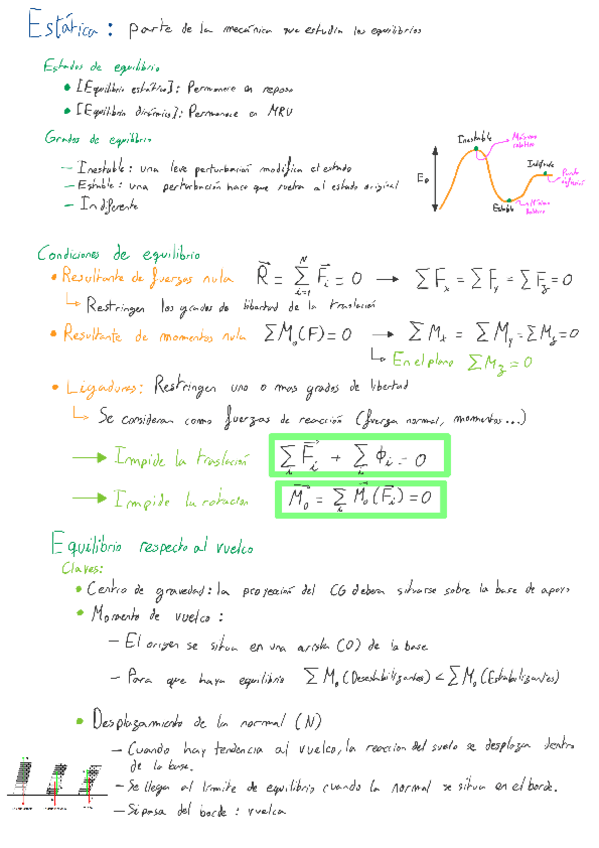 Estática: parte de la mecánica que estudia los equilibrios
Estados de equilibrio
• [Equilibrio estático]: Permanece en reposo
• [Equilibrio dinámico]: Permanece en MRU
Grados de equilibrio
— Inestable: una leve perturbación modifica el estado
— Estable: una perturbación hace que vuelva al estado original
— Indiferente
Ep
Inestable
Máximo relativo
Estable
Mínimo relativo
Indiferente
Punto inflexión
Condiciones de equilibrio
• Resultante de fuerzas nula R⃗ = ∑_{i=1}^{N} F⃗_i = 0 → ∑F_x = ∑F_y = ∑F_z = 0
↳ Restringen los grados de libertad de la traslación
• Resultante de momentos nula ∑M_o(F) = 0 → ∑M_x = ∑M_y = ∑M_z = 0
↳ En el plano ∑M_z = 0
• Ligaduras: Restringen uno o mas grados de libertad
↳ Se consideran como fuerzas de reacción (fuerza normal, momentos...)
→ Impide la traslación ∑_i F⃗_i + ∑_i ϕ_i = 0
→ Impide la rotacion M⃗_o = ∑_i M⃗_o(F⃗_i) = 0
Equilibrio respecto al vuelco
Claves:
• Centro de gravedad: la proyección del CG debera situarse sobre la base de apoyo
• Momento de vuelco:
— El origen se situa en una arista (O) de la base
— Para que haya equilibrio ∑M_o(Desestabilizantes) < ∑M_o(Estabilizantes)
• Desplazamiento de la normal (N)
— Cuando hay tendencia al vuelco, la reaccion del suelo se desplaza dentro
de la base.
— Se llega al limite de equilibrio cuando la normal se situa en el borde.
— Si pasa del borde: vuelca